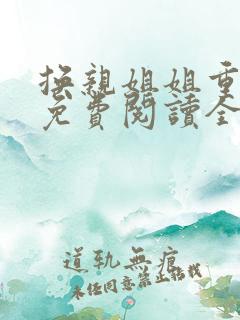 撫親姐姐重
免費閱讀全
道軌無痕
未任同意禁止轉載